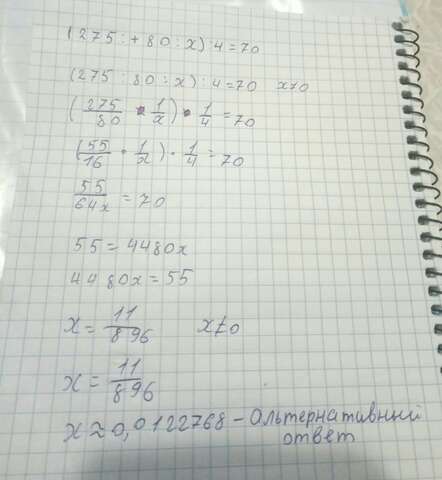 (275:+80:x):4=70
(275:80:x):4=70 x≠0
(275/80 · 1/x) · 1/4 = 70
(55/16 · 1/x) · 1/4 = 70
55/64x = 70
55=4480x
4480x=55
x = 11/896 x≠0
x = 11/896
x≈0,0122768 – альтернативный
ответ